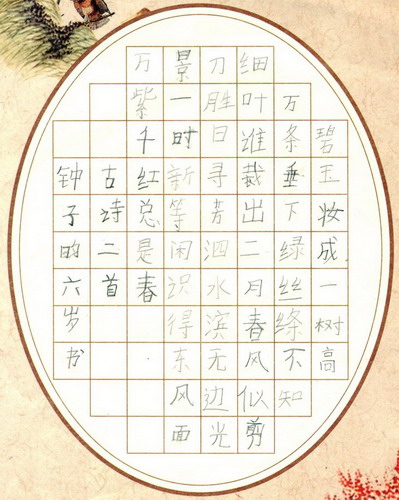 碧玉妆成一树高
万条垂下绿丝绦不知
细叶谁裁出二月春风似剪
刀胜日寻芳泗水滨无边光
景一时新等闲识得东风面
万紫千红总是春
古诗二首
钟子昀六岁书